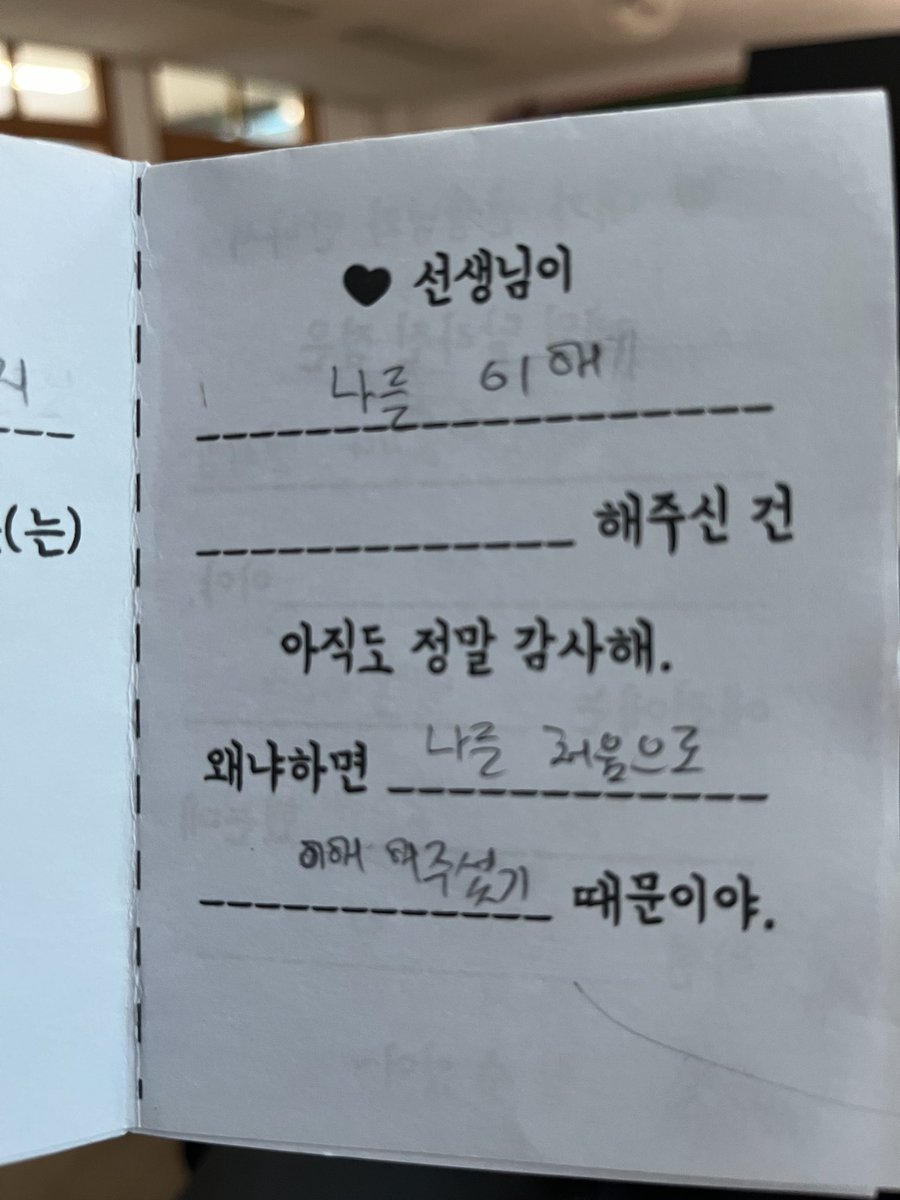 ♥ 선생님이
나를 이해
해주신 건
아직도 정말 감사해.
왜냐하면 나를 처음으로
이해 해주셨기 때문이야.
(는)